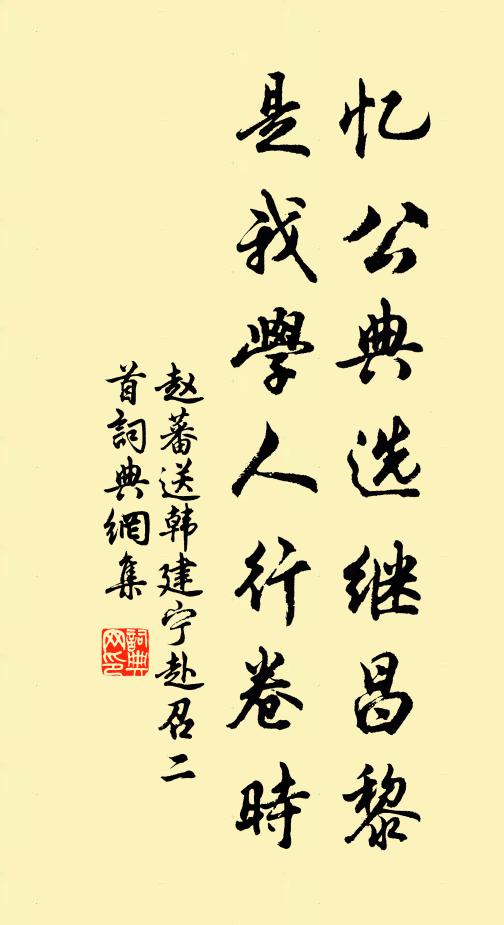 忆公典选继昌黎
是我學人行卷時
赵蕃送韩建宁赴召二
首詞典網集
詞典
网印